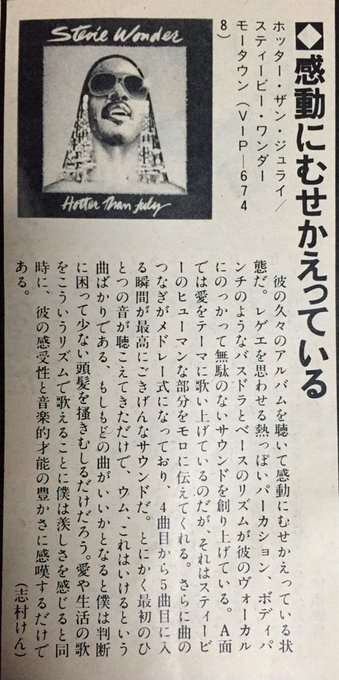 ◆感動にむせかえっている
Stevie Wonder
Hotter Than July
ホッター・ザン・ジュライ／
スティービー・ワンダー
モータウン（ＶＩＰ―６７４
８）
彼の久々のアルバムを聴いて感動にむせかえっている状
態だ。レゲエを思わせる熱っぽいパーカション、ボディパ
ンチのようなバスドラとベースのリズムが彼のヴォーカル
にのっかって無駄のないサウンドを創り上げている。Ａ面
では愛をテーマに歌い上げているのだが、それはスティービ
ーのヒューマンな部分をモロに伝えてくれる。さらに曲の
つなぎがメドレー式になっており、４曲目から５曲目に入
る瞬間が最高にごきげんなサウンドだ。とにかく最初のひ
とつの音が聴こえてきただけで、ウム、これはいけるという
曲ばかりである、もしもどの曲がいいかとなると僕は判断
に困って少ない頭髪を掻きむしるだけだろう。愛や生活の歌
をこういうリズムで歌えることに僕は羨しさを感じると同
時に、彼の感受性と音楽的才能の豊かさに感嘆するだけで
ある。
（志村けん）